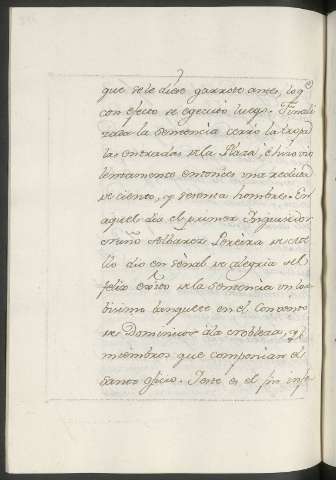 que se le diese garrote antes, lo q.e
con efecto se egecutó luego. Finali
zada la sentencia cerró la tropa
las entradas de la Plaza, e hizo vio
lentamente entonces una redada
de ciento, y sesenta hombres. En
aquel dia el primer Inquisidor
Albarez Pereira de
dio en señal de alegria del
feliz exito de la sentencia un lau
tisimo banquete en el Convento
de Dominicos á la nobleza, y
miembros que componian el
Santo oficio. Este es el fin infe